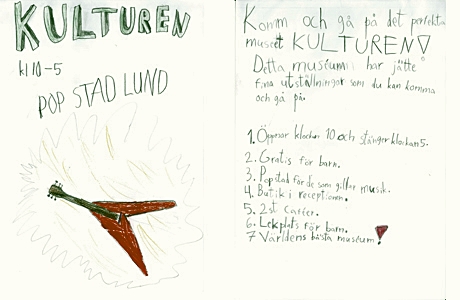 KULTUREN
kl 10-5
POP STAD LUND
Komm och gå på det perfekta
museet KULTUREN!
Detta muséum har jätte
fina utställningar som du kan komma
och gå på.
1. Öppnar klockan 10 och stänger klockan 5.
2. Gratis för barn.
3. Popstad för de som gillar musik.
4. Butik i receptionen.
5. 2st Caféer.
6. Lekplats för barn.
7 Världens bästa muséum!